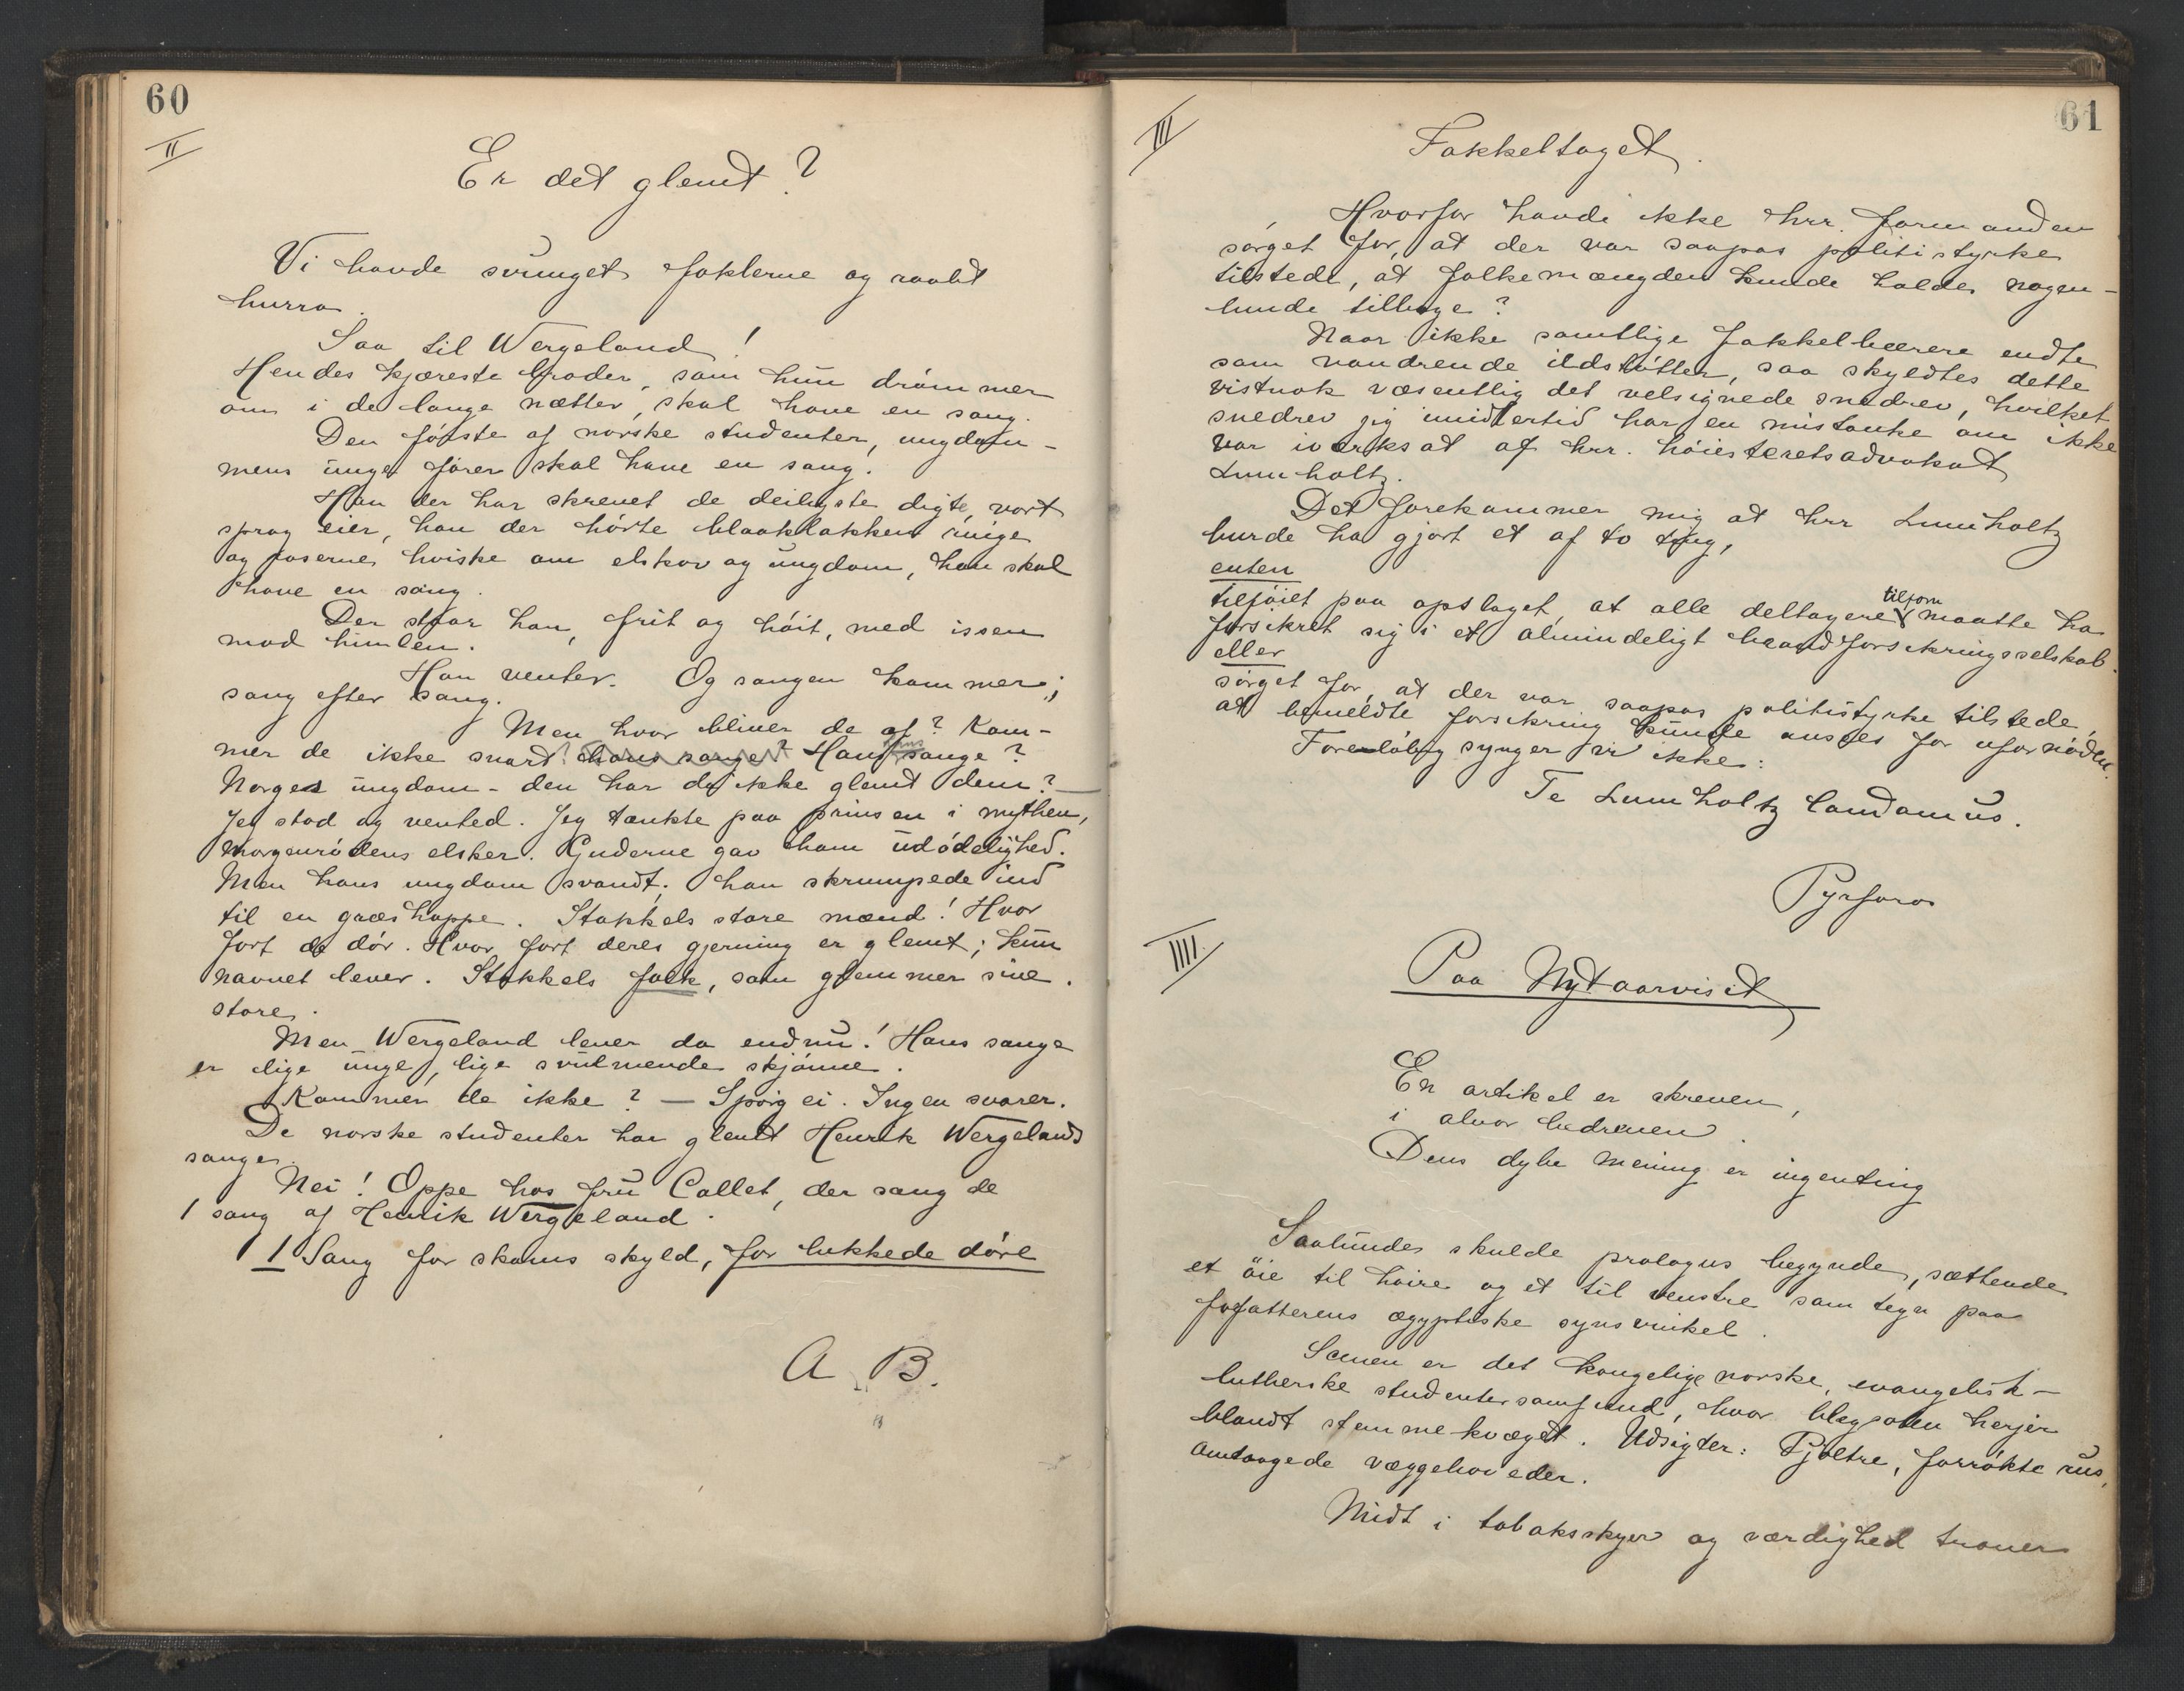 60
II
Er det glemt?
Vi havde svunget faklerne og raabt
hurra.
Saa til Wergeland!
Hendes kjæreste broder, som hun drömmer
om i de lange nætter, skal have en sang.
Den förste af norske studenter, ungdom-
mens unge förer skal have en sang.
Han der har skrevet de deiligste digte vort
sprog eier, han der hörte blaaklokken ringe
og roserne hviske om elskov og ungdom, han skal
have en sang.
Der staar han, frit og höit, med issen
mod himlen.
Han venter. Og sangen kommer;
sang efter sang.
Men hvor bliver de af? Kom-
mer de ikke snart? hans sange? Hans sange?
Norges ungdom - den har da ikke glemt dem? —
Jeg stod og vented. Jeg tænkte paa prinsen i mythen,
morgenrödens elsker. Guderne gav ham udödelighed.
Men hans ungdom svandt; han skrumpede ind
til en græshoppe. Stakkels store mænd! Hvor
fort de dör. Hvor fort deres gjerning er glemt; kun
navnet lever. Stakkels folk, som glemmer sine
store.
Men Wergeland lever da endnu! Hans sange
er lige unge, lige svulmende skjönne.
Kommer de ikke? — Spörg ei. Ingen svarer.
De norske studenter har glemt Henrik Wergelands
sange.
Nei! Oppe hos fru Collet, der sang de
1 sang af Henrik Wergeland.
1 Sang for skams skyld, for lukkede döre
A. B.
61
III
Fakkeltoget.
Hvorfor havde ikke hrr. formanden
sörget for, at der var saapas politistyrke
tilstede, at folkemængden kunde holdes nogen-
lunde tilbage?
Naar ikke samtlige fakkelbærere endte
som vandrende ildstötter, saa skyldtes dette
vistnok væsentlig det velsignede snedrev, hvilket
snedrev jeg imidlertid har en mistanke om ikke
var iverksat af hrr. höiesteretsadvokat
Lumholtz.
Det forekommer mig at hrr Lumholtz
burde ha gjort et af to ting,
enten
tilföiet paa opslaget, at alle deltagere tilforn maatte ha
forsikret sig i et almindeligt brandforsikringsselskab.
eller
sörget for, at der var saapas politistyrke tilstede,
at bemeldte forsikring kunde ansees for ufornöden.
Forelöbig synger vi ikke:
Te Lumholtz laudamus.
Pyrforos
IIII.
Paa Nytaarvisit
En artikel er skreven,
i alvor bedreven.
Dens dybe mening er ingenting
Saalundes skulde prologus begynde, sættende
et öie til höire og et til venstre som tegn paa
fofatterens ægyptiske synsvinkel.
Scenen er det kongelige norske, evangelisk-
lutherske studentersamfund, hvor blegsotten herjer
blandt stemmekvæget. Udsigter: Pjoltre, forrökte rus,
omtaagede væggehoveder.
Midt i tobaksskyer og værdighed troner